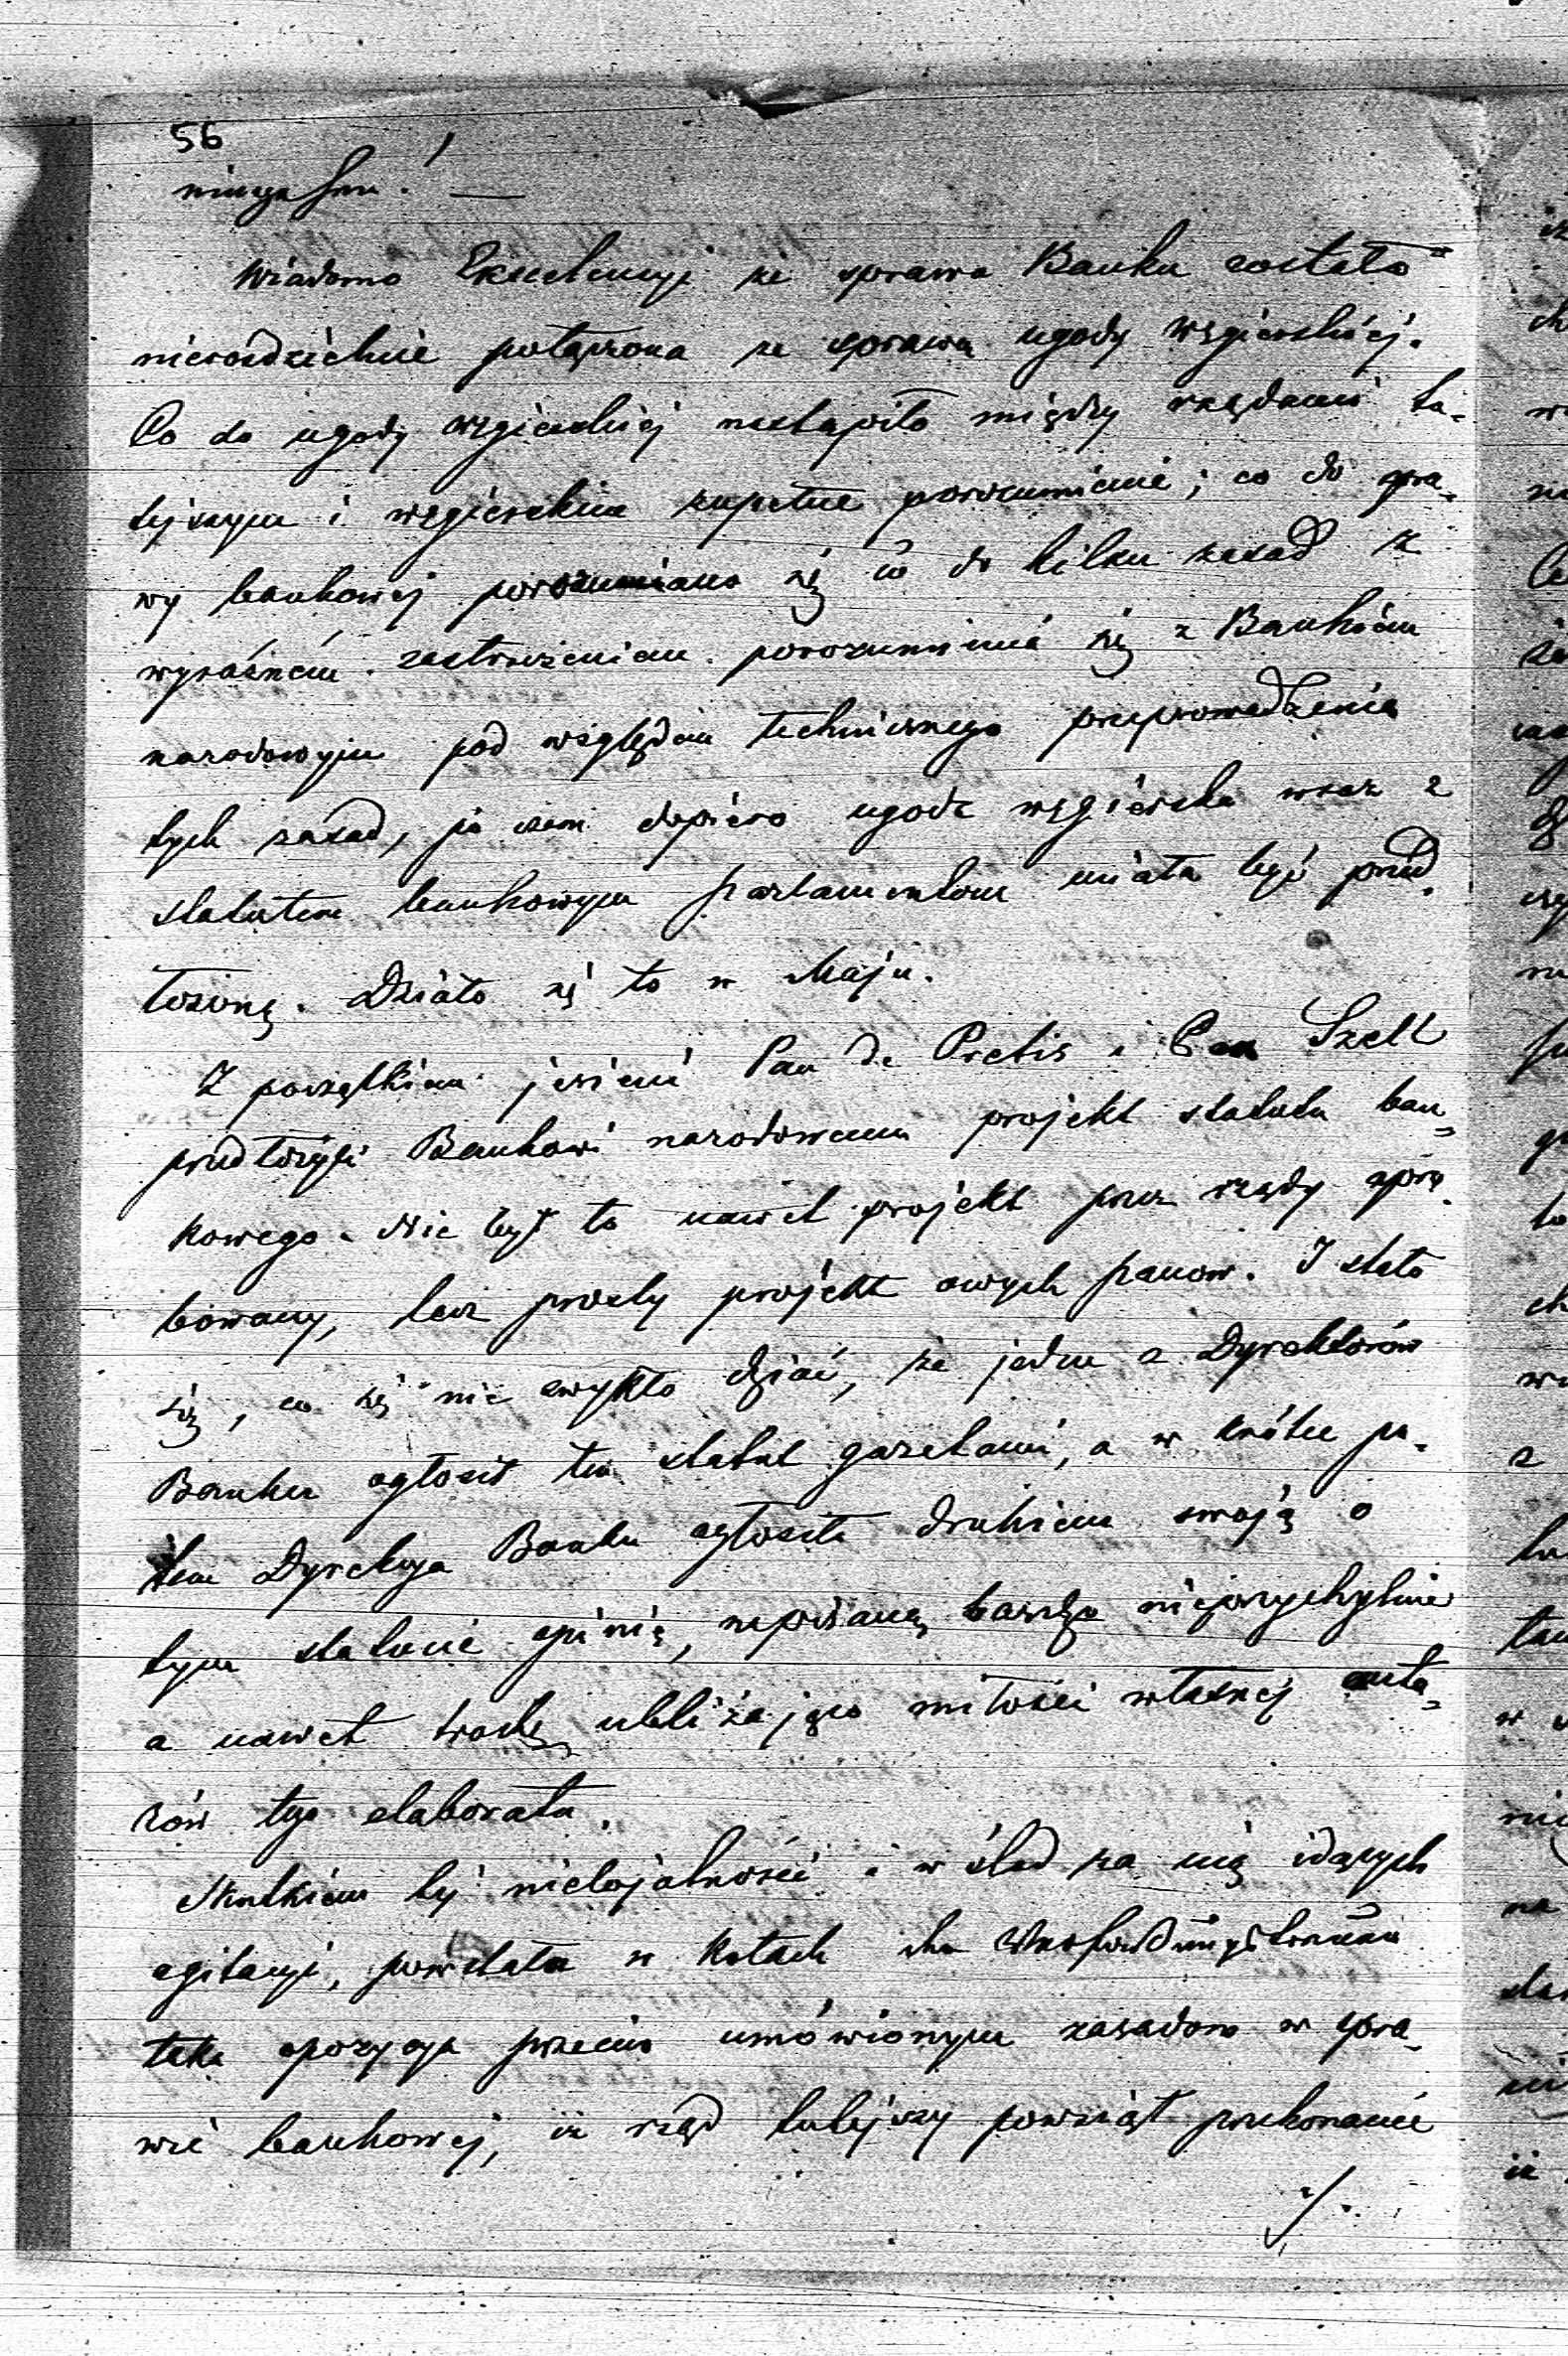 56
Wiadomo Excelencyi że sprawa Banku została
nierozdzielnie połączona ze sprawą ugody węgierskiéj.
Co do ugody węgierskiéj nastąpiło między rządami tu-
tejszym i węgierskim zupełne porozumienie; co do spra-
wy bankowej porozumiano się co do kilku zasad z
wyraźném zastrzeżeniem porozumienia się z Bankiem
narodowym pod względem technicznego przeprowadzenia
tych zasad, po czem dopiero ugoda węgierska wraz z
statutem bankowym parlamentom miała być przed-
łożoną. Działo się to w Maju.
Z początkiem jesieni Pan de Pretis i Pan Szell
przedłożyli Bankowi narodowemu projekt statutu ban-
kowego. Nie był to nawet projekt przez rządy apro-
bowany, lecz prosty projekt owych panow. I stało
się, co się nie zwykło dziać, że jeden z Dyrektorów
Banku ogłosił ten statut gazetami, a w krótce po-
tem Dyrekcya Banku ogłosiła drukiem swoją o
tym statucie opinię, napisaną bardzo nieprzychylnie
a nawet trochę ubliżająco miłości własnej auto-
rów tego elaboratu.
Skutkiem tej nielojalności i w ślad za nią idących
agitacyi, powstała w kołach
taka opozycya przeciw umówionym zasadom w spra-
wie bankowej, iż rząd tutejszy powziął przekonanie
./.